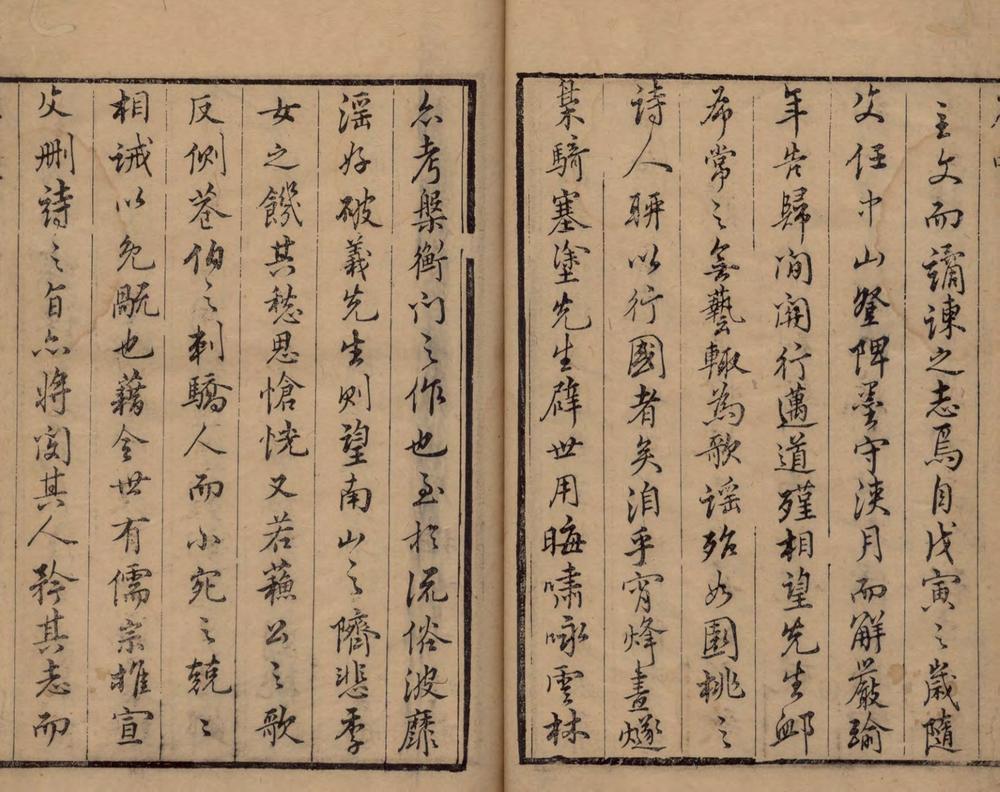 主文而譎諫之志焉自戊寅之歲隨
父任中山登陴墨守浹月而解嚴踰
年告歸間關行邁道殣相望先生卹
常之無藝輒為歌謡殆如園桃之
詩人聊以行國者矣洎乎宵烽晝燧
梟騎塞塗先生辟世用晦嘯咏雲林
亦考槃衡門之作也至於流俗波靡
滛好破義先生則望南山之隮悲季
女之饑其愁思愴怳又若蘓公之歌
反側巷伯之刺驕人而小宛之兢〻
相誡以免也藉令世有儒宗推宣
父刪詩之旨亦將閔其人矜其志而